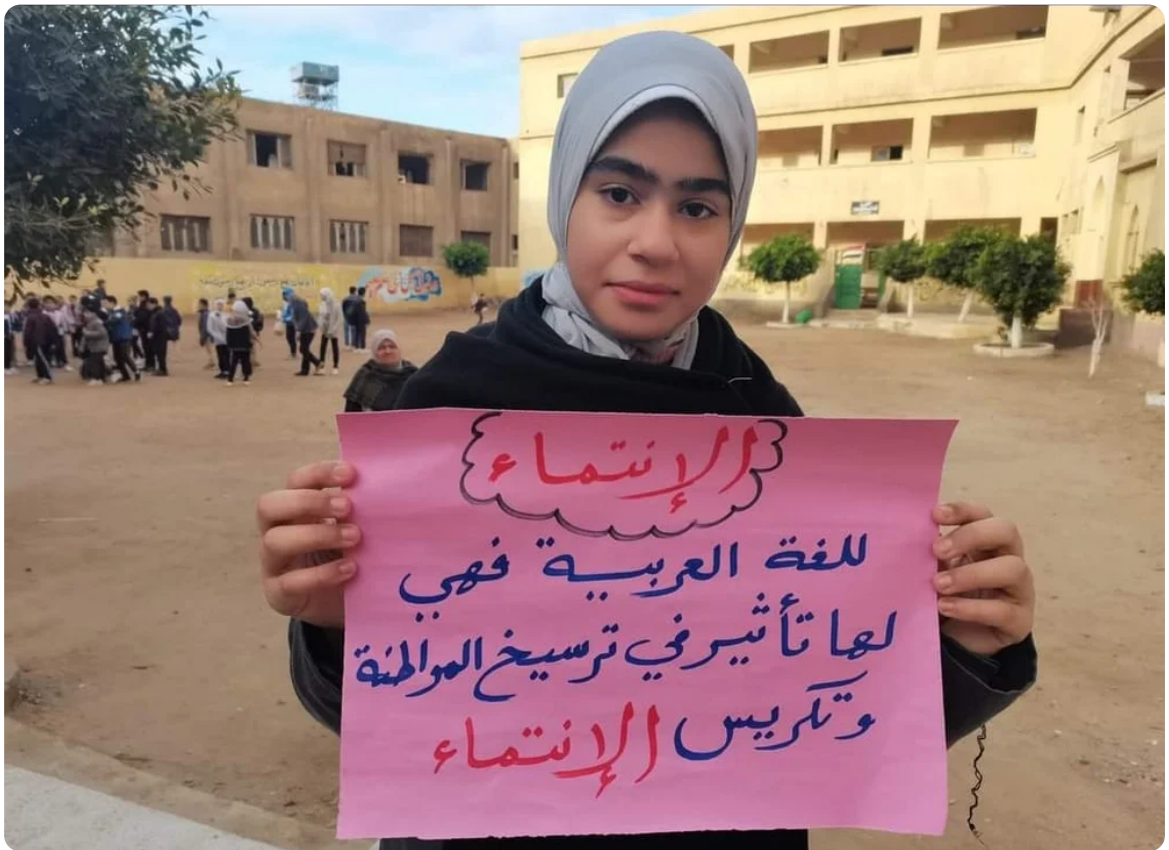 الإنتماء
للغة العربية فهي
لها تأثير في ترسيخ المواطنة
وتكريس الإنتماء